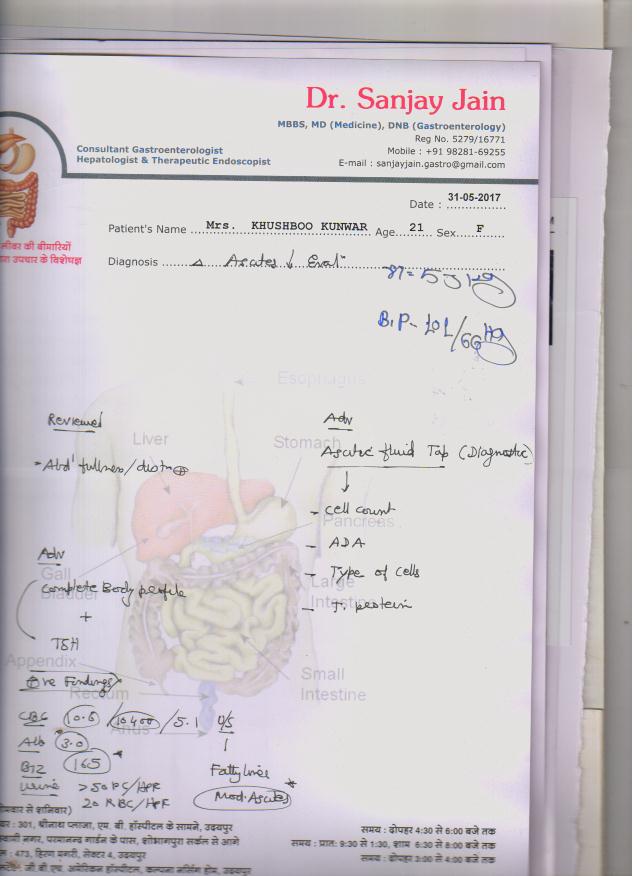 Dr. Sanjay Jain
MBBS, MD (Medicine), DNB (Gastroenterology)
Reg No. 5279/16771
Mobile : +91 98281-69255
E-mail : sanjayjain.gastro@gmail.com
Consultant Gastroenterologist
Hepatologist & Therapeutic Endoscopist
लीवर की बीमारियों
उपचार के विशेषज्ञ
Date : 31-05-2017
Patient's Name Mrs. KHUSHBOO KUNWAR Age 21 Sex F
Diagnosis Δ Ascites ↓ Eval
B.P- 101/66 Hg
Esophagus
Reviewed
Adv
Liver
Stomach
Ascitic fluid Tap (Diagnostic)
- Abd fullness/distn ⊕
↓
- Cell count
Pancreas
- ADA
Adv
- Type of cells
Gall
Bladder
Complete Body profile
Large
Intestine
- T. protein
+
TSH
Appendix
Small
Intestine
⊕ve Findings
Rectum
CBC 10.6 / 10400 / 5.1
U/S
Anus
Alb 3.0
B12 165
Fatty liver
Urine >50 PC/HPF
20 RBC/HPF
Mod. Ascites
से शनिवार)
: 301, श्रीनाथ प्लाजा, एम. बी. हॉस्पीटल के सामने, उदयपुर
समय : दोपहर 4:30 से 6:00 बजे तक
नगर, परमानन्द गार्डन के पास, शोभागपुरा सर्कल से आगे
समय : प्रात: 9:30 से 1:30, शाम 6:30 से 8:00 बजे तक
: 473, हिरण मगरी, सेक्टर 4, उदयपुर
समय : दोपहर 3:00 से 4:00 बजे तक
जी.बी.एच. अमेरिकन हॉस्पीटल, कल्पना नर्सिंग होम, उदयपुर